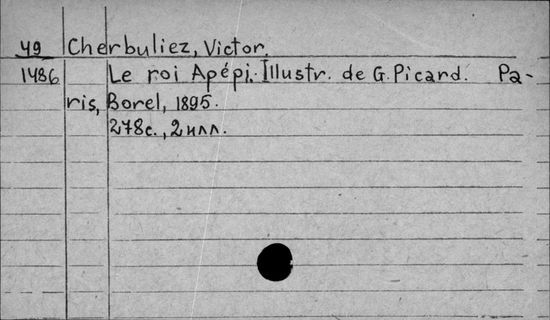 49 Cherbuliez, Victor.
1486 Le roi Apépi. Illustr. de G. Picard. Pa-
ris, Borel, 1895.
278с., 2 илл.